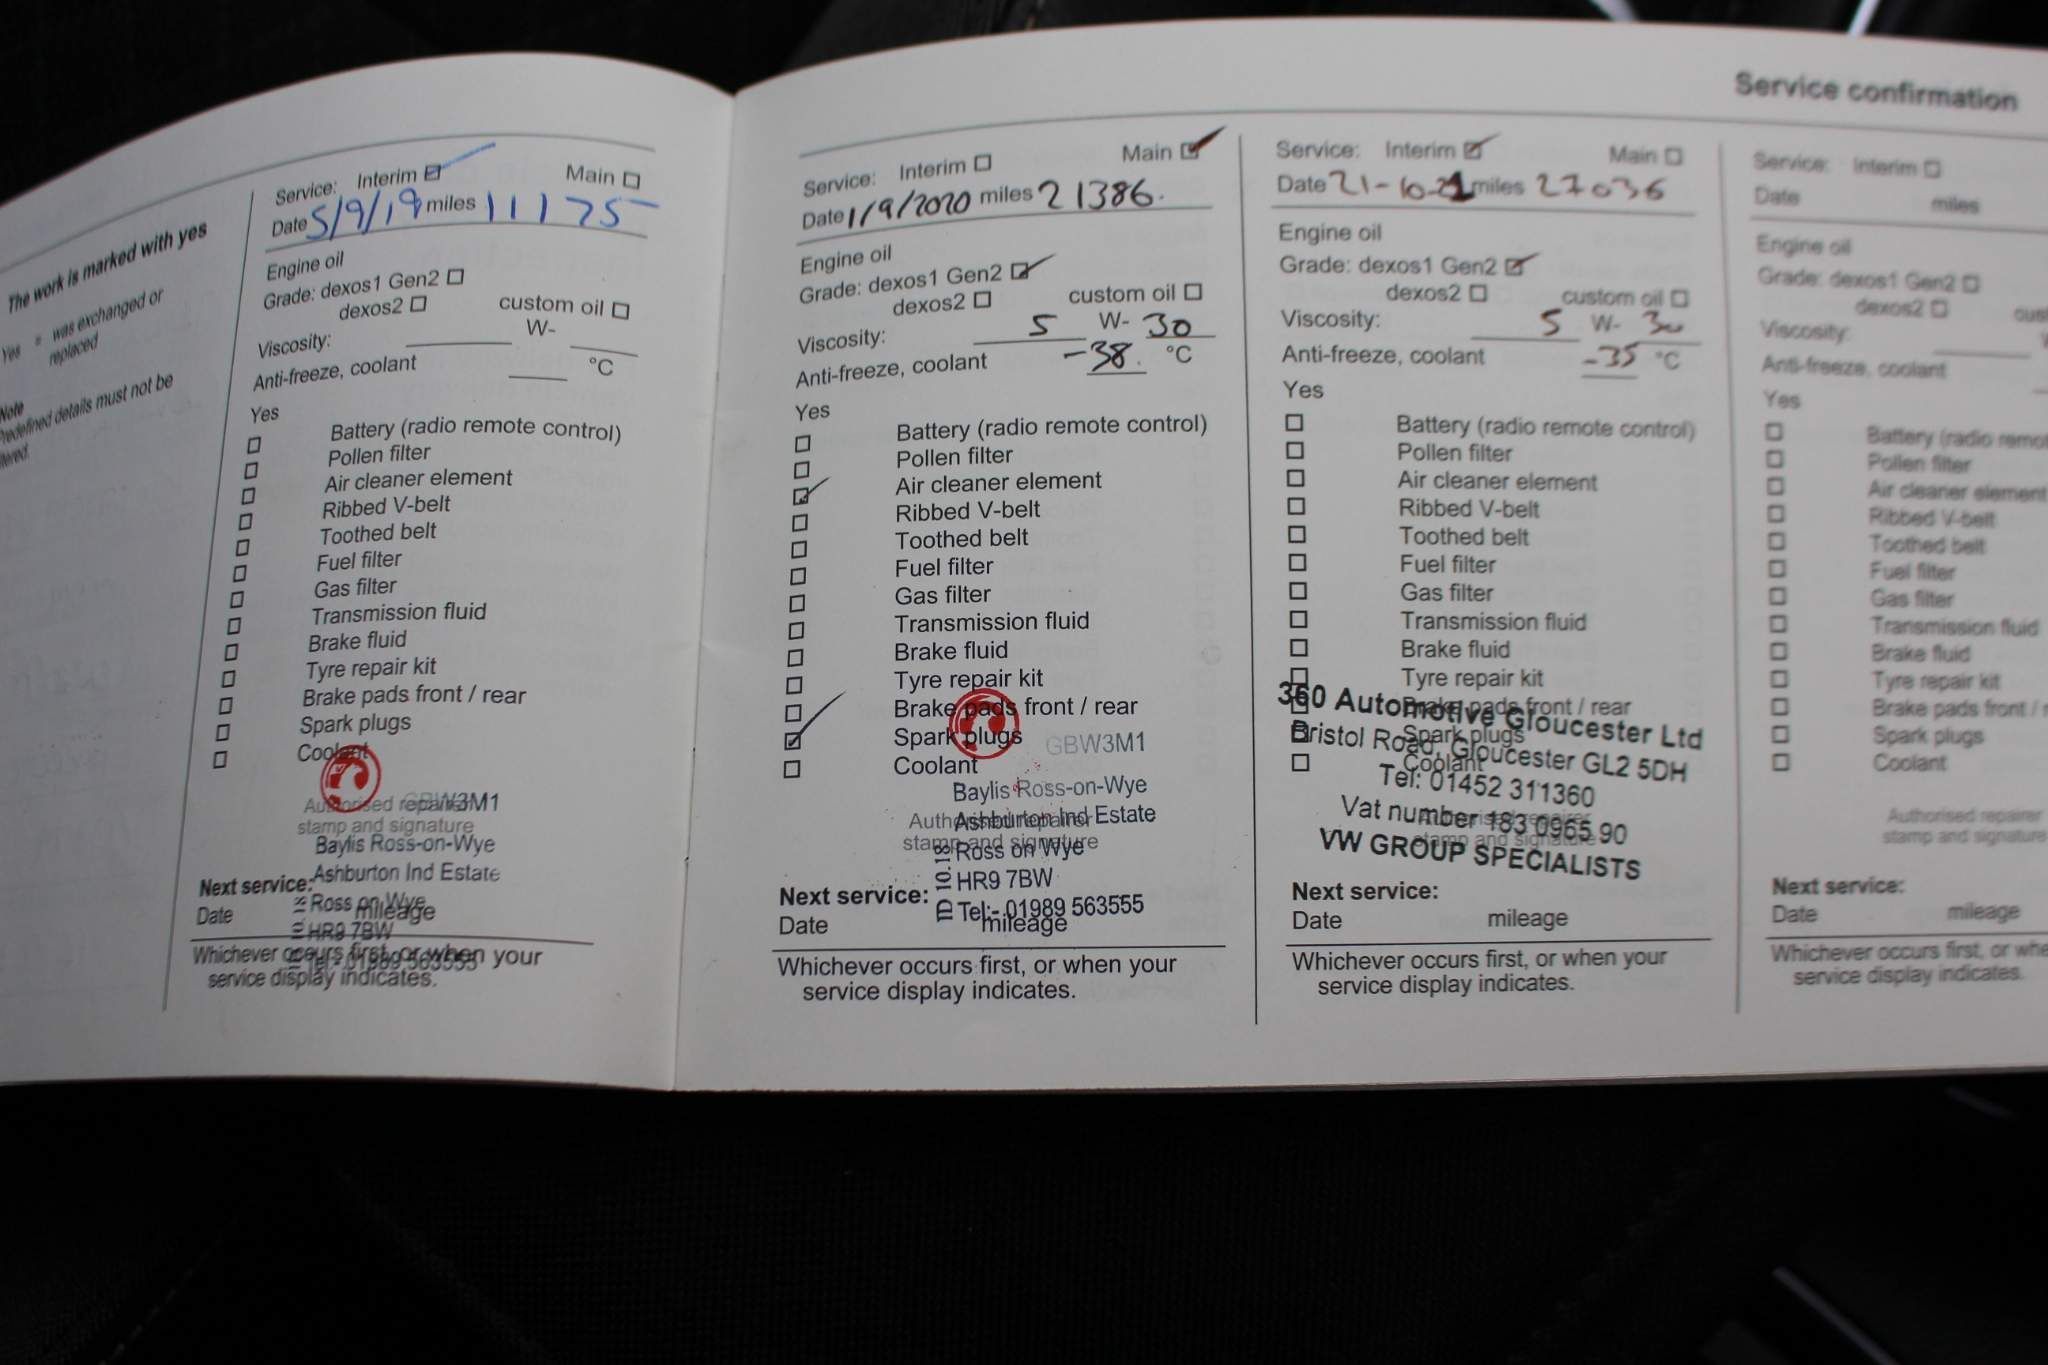 Service confirmation
The work is marked with yes
Yes = was exchanged or
replaced
Note
Predefined details must not be
Service: Interim ☑ Main ☐
Date 5/9/19 miles 11175
Engine oil
Grade: dexos1 Gen2 ☐
dexos2 ☐ custom oil ☐
Viscosity: W-
Anti-freeze, coolant °C
Yes
☐ Battery (radio remote control)
☐ Pollen filter
☐ Air cleaner element
☐ Ribbed V-belt
☐ Toothed belt
☐ Fuel filter
☐ Gas filter
☐ Transmission fluid
☐ Brake fluid
☐ Tyre repair kit
☐ Brake pads front / rear
☐ Spark plugs
☐ Coolant
GBW3M1
Authorised repairer
stamp and signature
Baylis Ross-on-Wye
Ashburton Ind Estate
Ross on Wye
HR9 7BW
Tel:- 01989 563555
Next service:
Date mileage
Whichever occurs first, or when your
service display indicates.
Service: Interim ☐ Main ☑
Date 1/9/2020 miles 21386.
Engine oil
Grade: dexos1 Gen2 ☑
dexos2 ☐ custom oil ☐
Viscosity: 5 W- 30
Anti-freeze, coolant -38. °C
Yes
☐ Battery (radio remote control)
☐ Pollen filter
☑ Air cleaner element
☐ Ribbed V-belt
☐ Toothed belt
☐ Fuel filter
☐ Gas filter
☐ Transmission fluid
☐ Brake fluid
☐ Tyre repair kit
☐ Brake pads front / rear
☑ Spark plugs
☐ Coolant
GBW3M1
Baylis Ross-on-Wye
Ashburton Ind Estate
Authorised repairer
stamp and signature
Ross on Wye
HR9 7BW
Tel:- 01989 563555
ID 10.18
Next service:
Date mileage
Whichever occurs first, or when your
service display indicates.
Service: Interim ☑ Main ☐
Date 21-10-21 miles 27036
Engine oil
Grade: dexos1 Gen2 ☑
dexos2 ☐ custom oil ☐
Viscosity: 5 W- 30
Anti-freeze, coolant -35 °C
Yes
☐ Battery (radio remote control)
☐ Pollen filter
☐ Air cleaner element
☐ Ribbed V-belt
☐ Toothed belt
☐ Fuel filter
☐ Gas filter
☐ Transmission fluid
☐ Brake fluid
☐ Tyre repair kit
☐ Brake pads front / rear
☐ Spark plugs
☐ Coolant
360 Automotive Gloucester Ltd
Bristol Road, Gloucester GL2 5DH
Tel: 01452 311360
Vat number 183 0965 90
VW GROUP SPECIALISTS
Authorised repairer
stamp and signature
Next service:
Date mileage
Whichever occurs first, or when your
service display indicates.
Service: Interim ☐
Date miles
Engine oil
Grade: dexos1 Gen2 ☐
dexos2 ☐
Viscosity:
Anti-freeze, coolant
Yes
☐ Battery (radio
☐ Pollen filter
☐ Air cleaner element
☐ Ribbed V-belt
☐ Toothed belt
☐ Fuel filter
☐ Gas filter
☐ Transmission fluid
☐ Brake fluid
☐ Tyre repair kit
☐ Brake pads front /
☐ Spark plugs
☐ Coolant
Authorised repairer
stamp and signature
Next service:
Date mileage
Whichever occurs first, or
service display indicates.